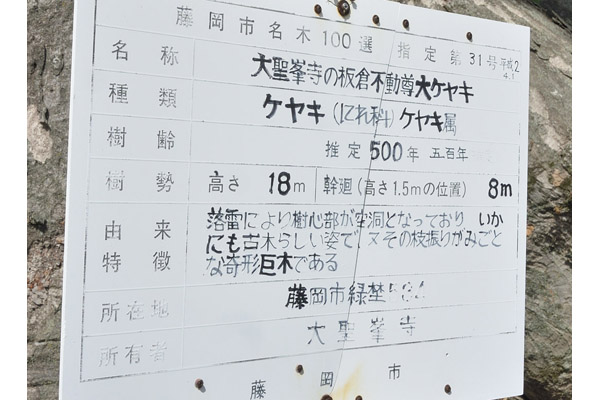 藤岡市名木100選 指定第31号 平成2 4.1
名称 大聖峯寺の板倉不動尊大ケヤキ
種類 ケヤキ(にれ科)ケヤキ属
樹齢 推定500年 五百年
樹勢 高さ 18m 幹廻(高さ1.5mの位置) 8m
由来 特徴 落雷により樹心部が空洞となっており いか
にも古木らしい姿で又その枝振りがみごと
な奇形巨木である
所在地 藤岡市緑埜
所有者 大聖峯寺
藤岡市